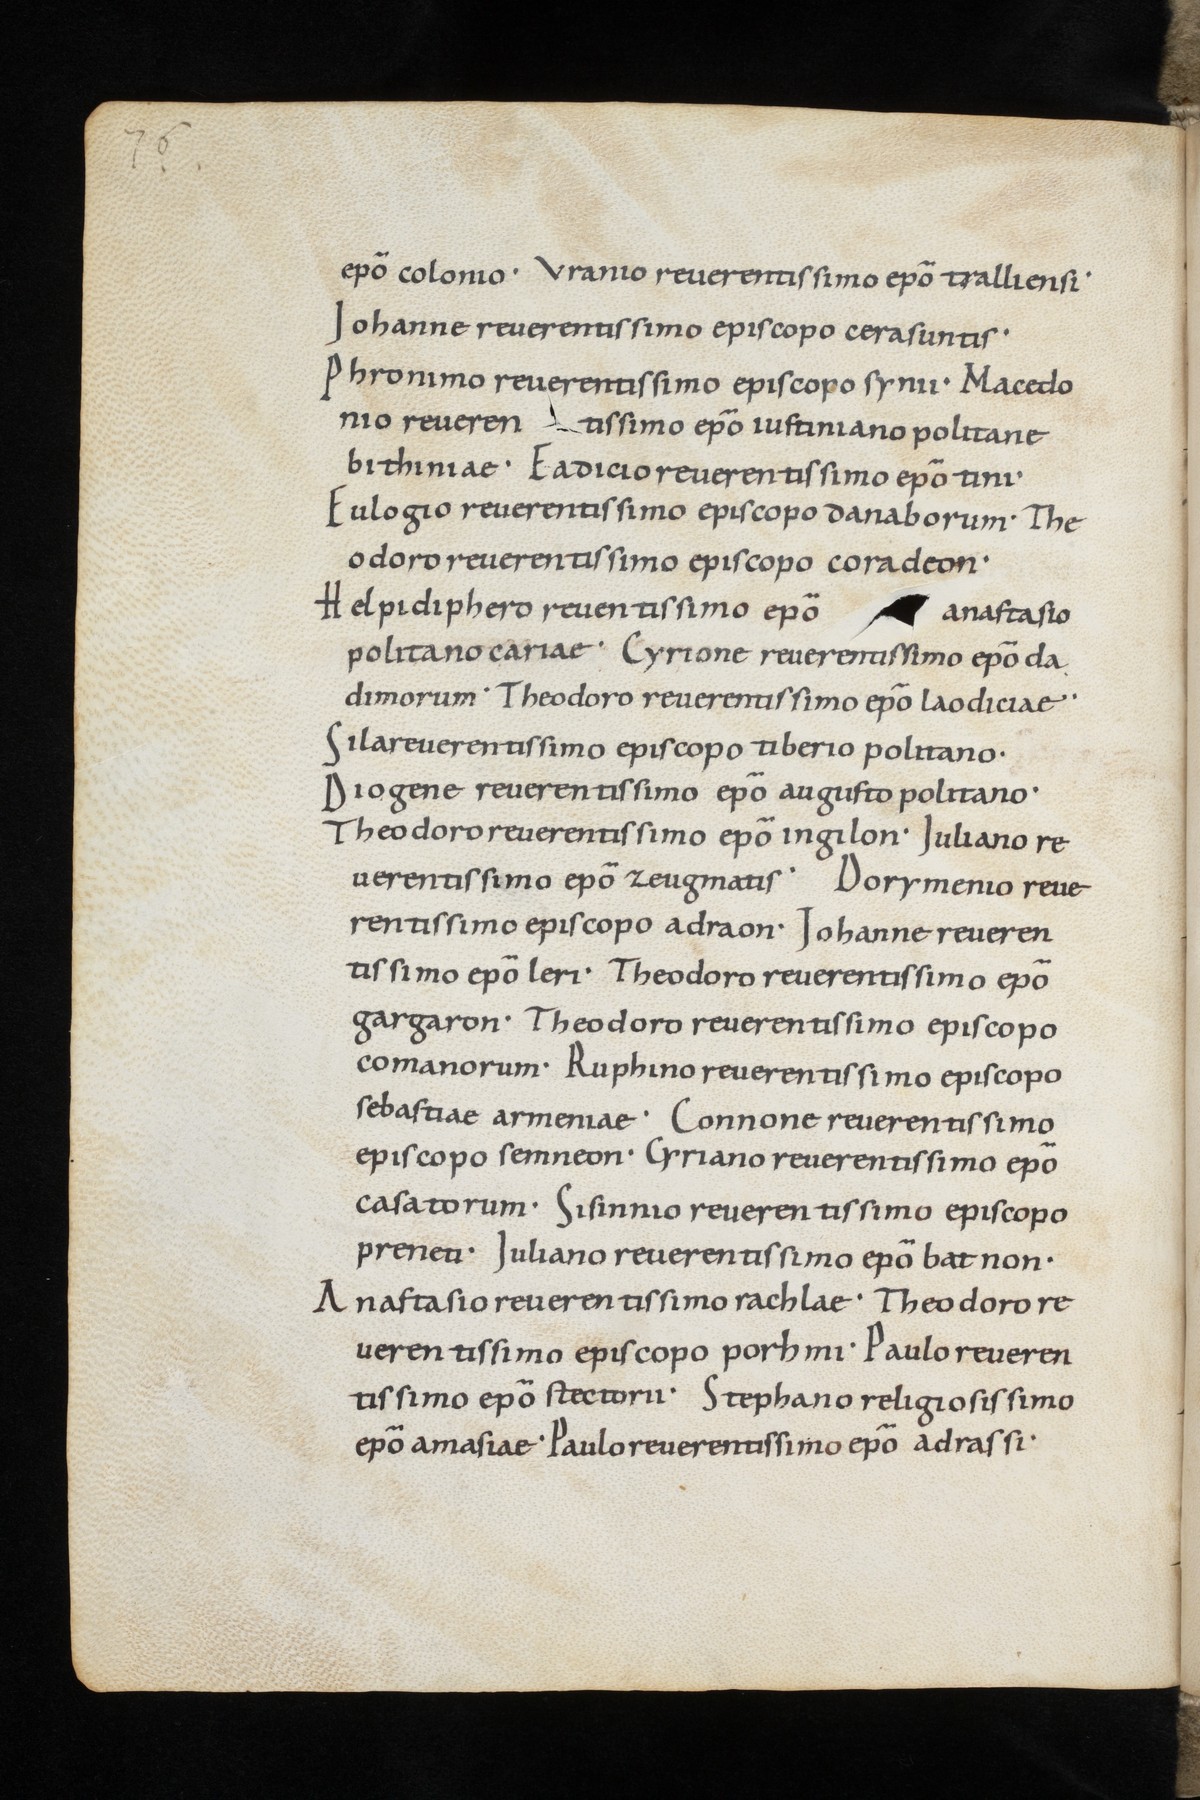 76.
epō colonio· Uranio reuerentissimo epō tralliensi·
Johanne reuerentissimo episcopo cerasuntis·
Phronimo reuerentissimo episcopo synii· Macedo
nio reueren tissimo epō iustiniano politane
bithiniae· Eadicio reuerentissimo epō tini·
Eulogio reuerentissimo episcopo danaborum· The
odoro reuerentissimo episcopo coradeon·
Helpidiphero reuentissimo epō anastasio
politano cariae· Cyrione reuerentissimo epō da
dimorum· Theodoro reuerentissimo epō laodiciae·
Sila reuerentissimo episcopo tiberio politano·
Diogene reuerentissimo epō augusto politano·
Theodoro reuerentissimo epō ingilon· Juliano re
uerentissimo epō zeugmatis· Dorymenio reue
rentissimo episcopo adraon· Johanne reueren
tissimo epō leri· Theodoro reuerentissimo epō
gargaron· Theodoro reuerentissimo episcopo
comanorum· Ruphino reuerentissimo episcopo
sebastiae armeniae· Connone reuerentissimo
episcopo semneon· Cyriano reuerentissimo epō
casatorum· Sisinnio reuerentissimo episcopo
preneti· Juliano reuerentissimo epō batnon·
Anastasio reuerentissimo rachlae· Theodoro re
uerentissimo episcopo porhmi· Paulo reueren
tissimo epō stectorii· Stephano religiosissimo
epō amasiae· Paulo reuerentissimo epō adrassi·